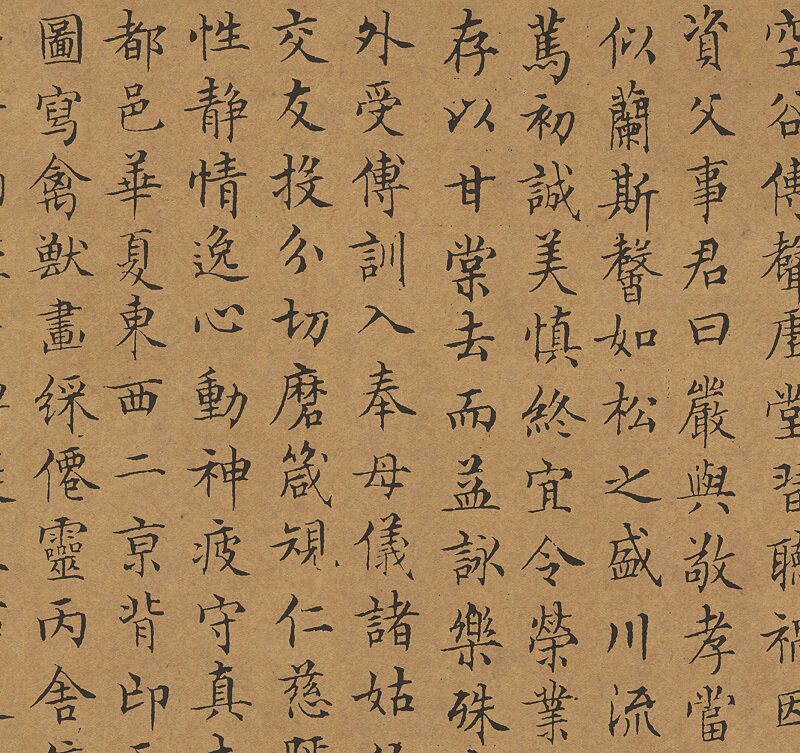 空谷傳聲虛堂習聽禍因
資父事君曰嚴與敬孝當
似蘭斯馨如松之盛川流
篤初誠美慎終宜令榮業
存以甘棠去而益詠樂殊
外受傅訓入奉母儀諸姑
交友投分切磨箴規仁慈
性静情逸心動神疲守真
都邑華夏東西二京背邙
圖寫禽獸畫綵僊靈丙舍